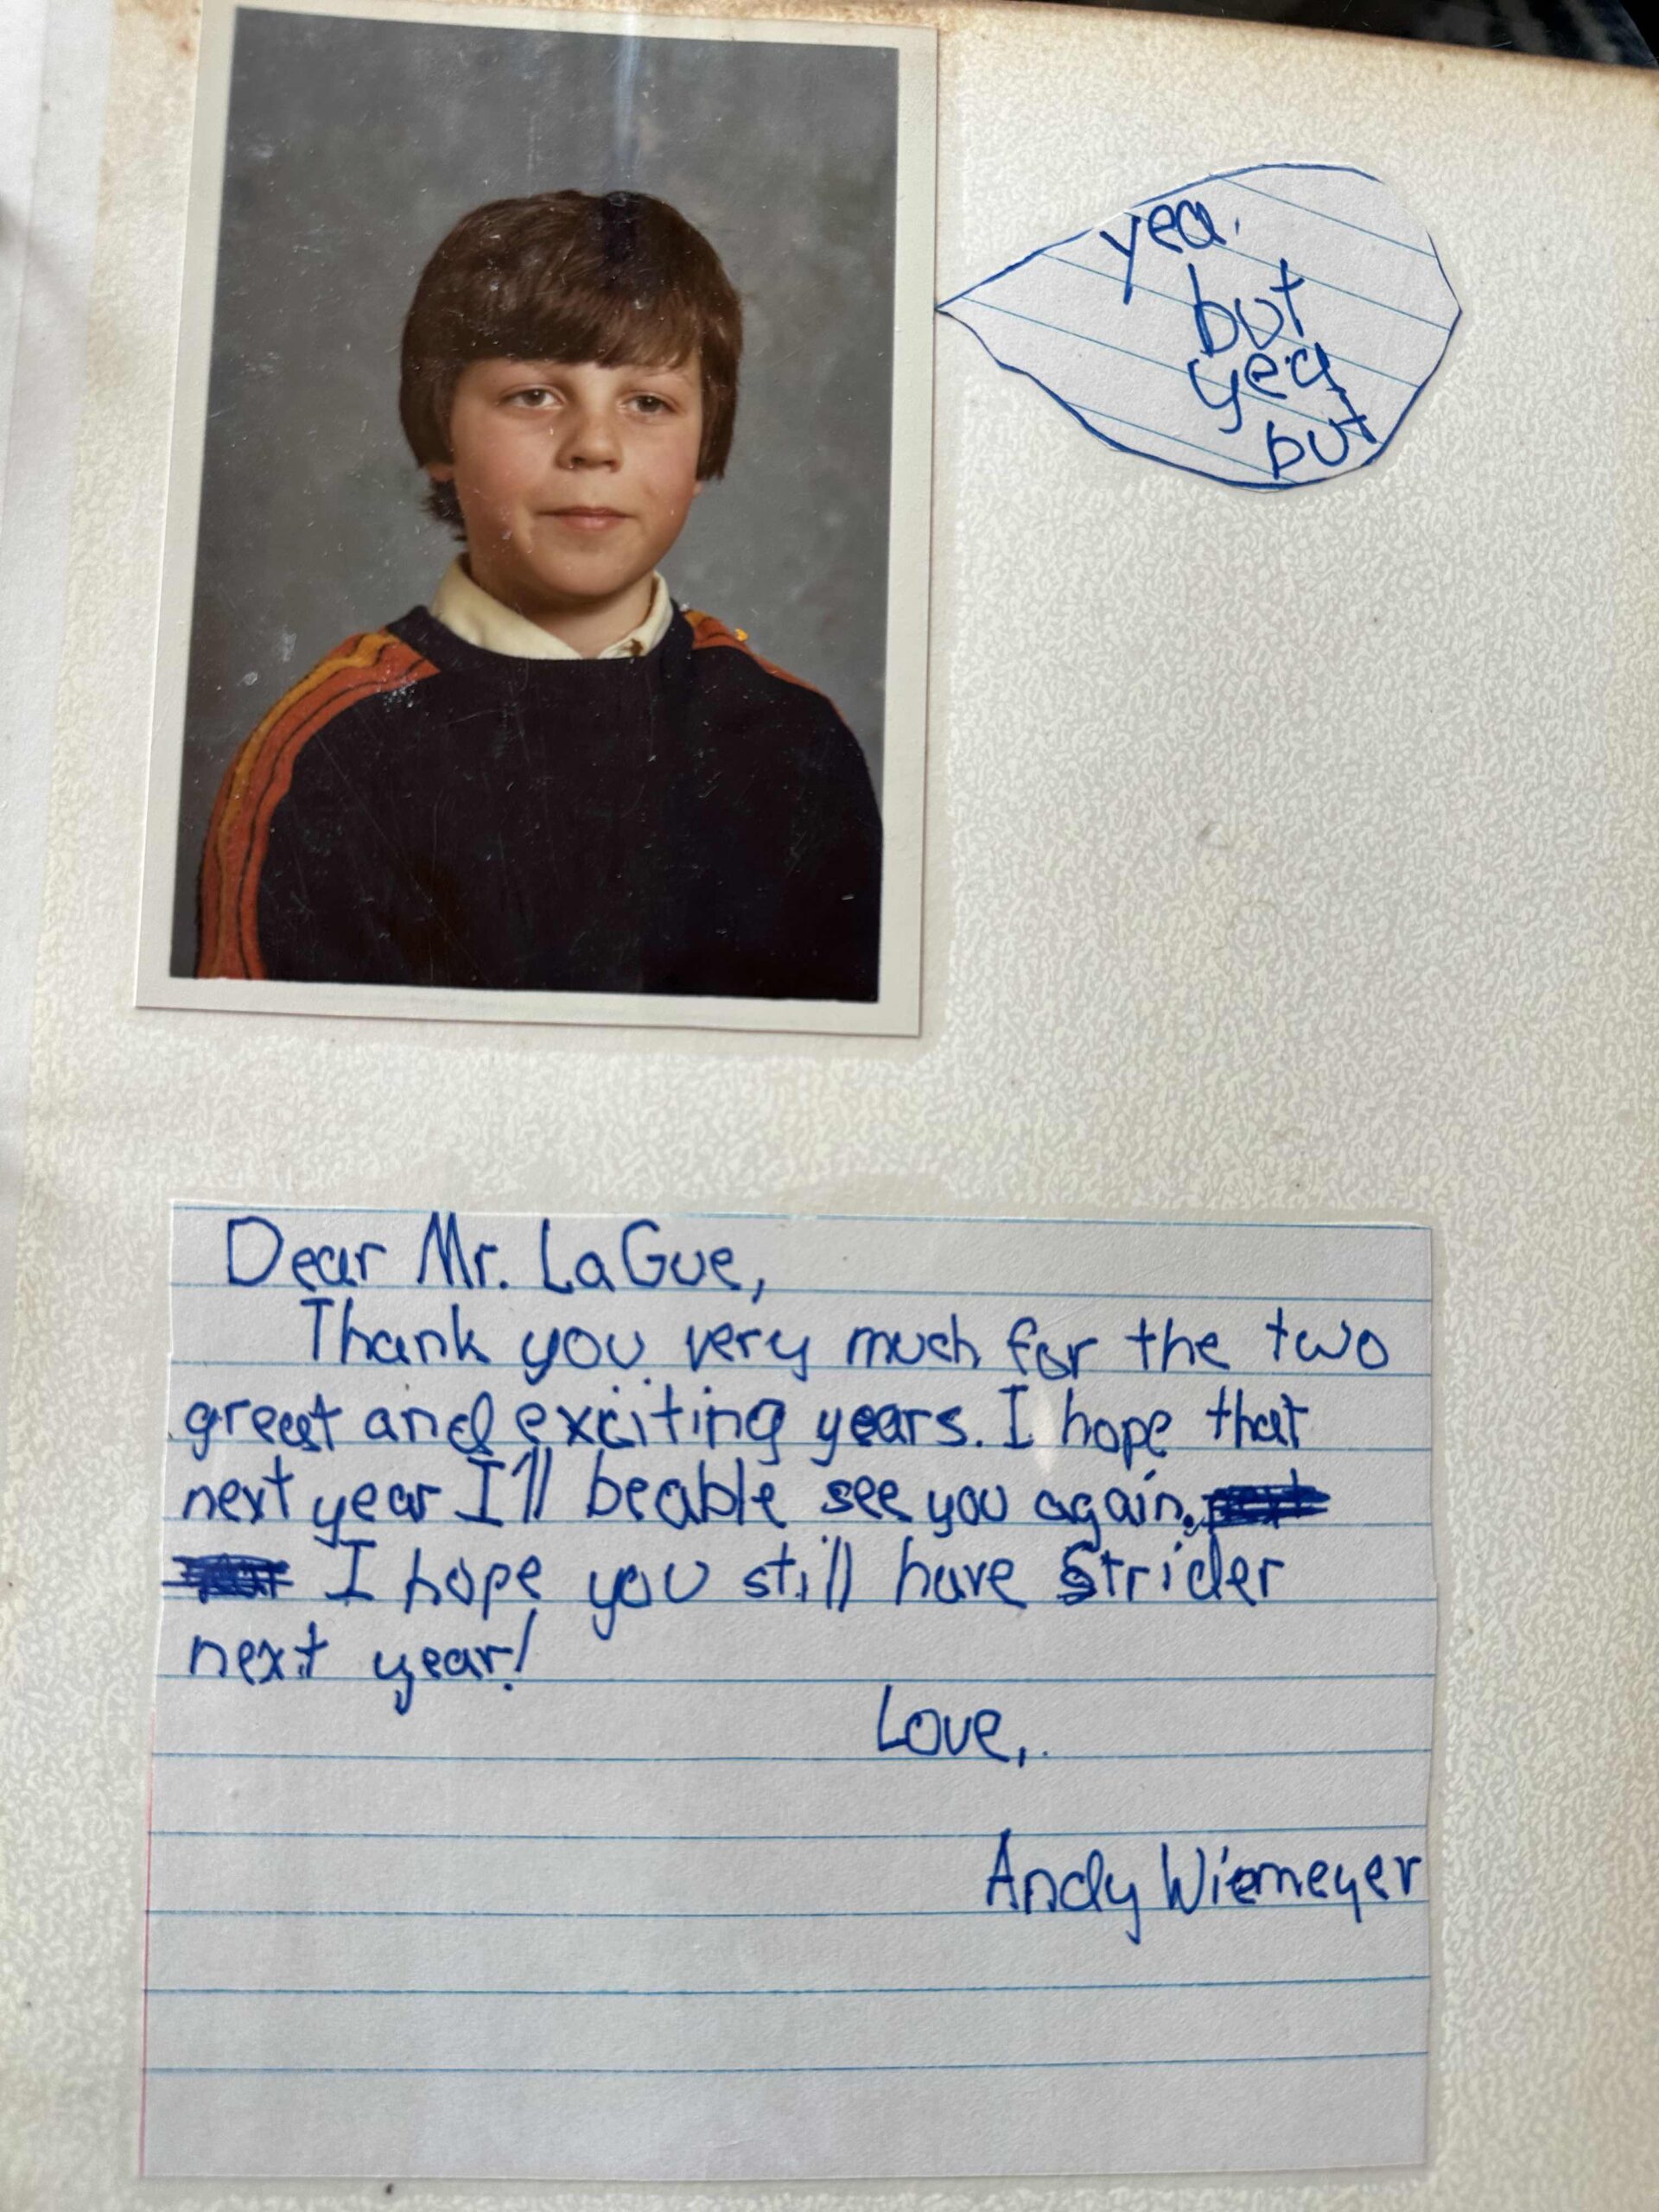 yea.
but
yea
but
Dear Mr. LaGue,
Thank you very much for the two
great and exciting years. I hope that
next year I'll beable see you again.
I hope you still have Strider
next year!
Love,
Andy Wiemeyer